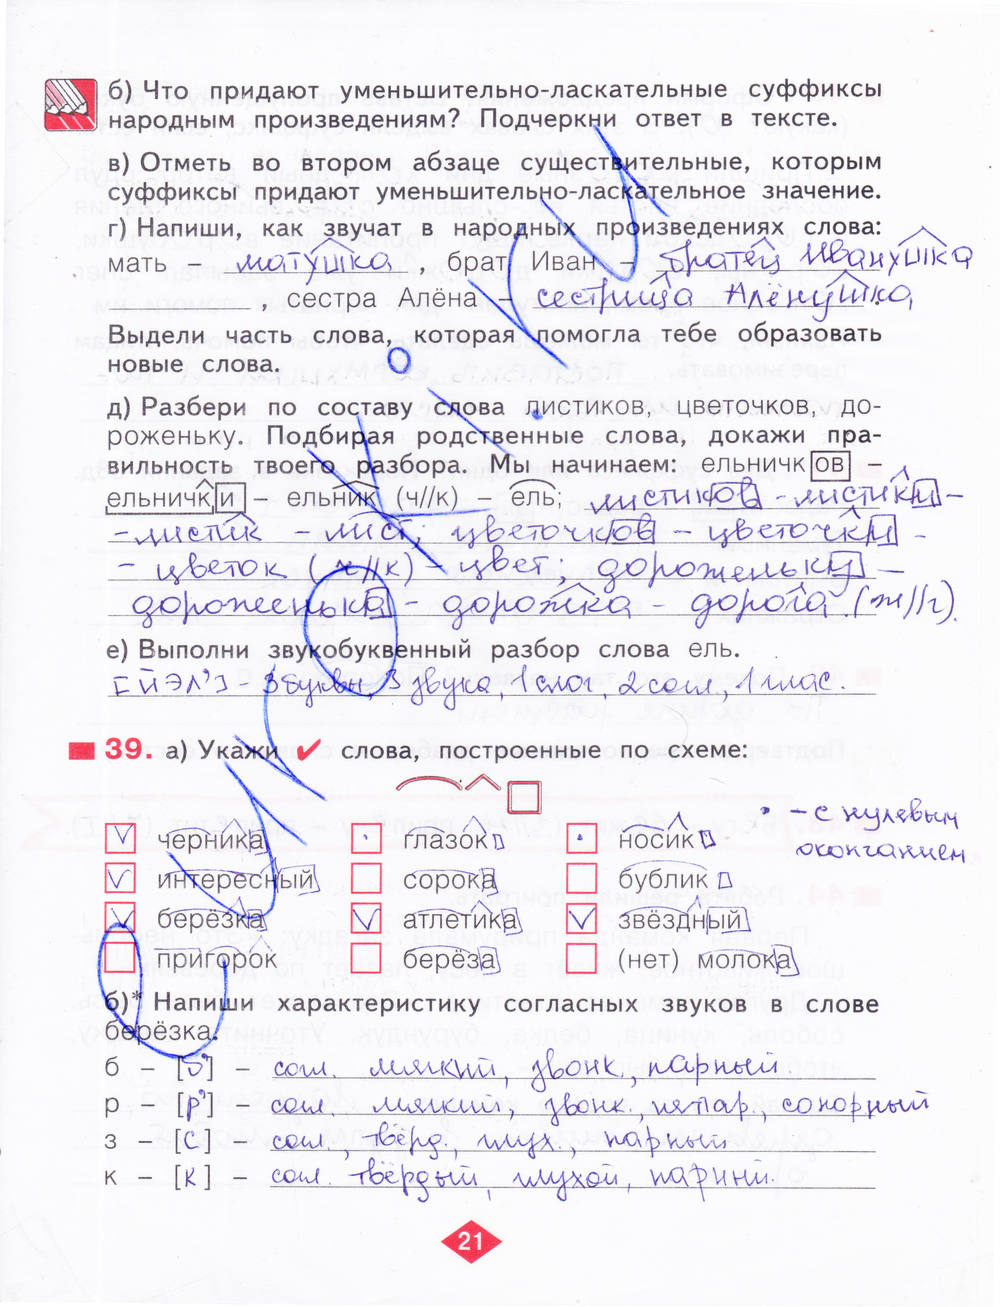 б) Что придают уменьшительно-ласкательные суффиксы
народным произведениям? Подчеркни ответ в тексте.
в) Отметь во втором абзаце существительные, которым
суффиксы придают уменьшительно-ласкательное значение.
г) Напиши, как звучат в народных произведениях слова:
мать – матушка брат Иван – братец Иванушка
, сестра Алёна – сестрица Алёнушка.
Выдели часть слова, которая помогла тебе образовать
новые слова.
д) Разбери по составу слова листиков, цветочков, до-
роженьку. Подбирая родственные слова, докажи пра-
вильность твоего разбора. Мы начинаем: ельничков –
ельнички – ельник (ч//к) – ель; листиков - листики -
- листик - лист, цветочков - цветочки -
- цветок (ч//к) - цвет, дороженьку -
дороженька - дорожка - дорога (ж//г).
е) Выполни звукобуквенный разбор слова ель.
[йэл'] 3 буквы 3 звука, 1 слог, 2 согл., 1 глас.
39. а) Укажи ✓ слова, построенные по схеме:
• - с нулевым
окончанием
V черника • глазок • носик
V интересный сорока бублик
V берёзка V атлетика V звёздный
пригорок берёза (нет) молока
б)* Напиши характеристику согласных звуков в слове
берёзка.
б – [б'] – согл. мягкий, звонк., парный
р – [р'] – согл мягкий, звонк, непар., сонорный
з – [с] – согл., твёрд., глух., парный
к – [к] – согл. твёрдый, глухой, парный.
21